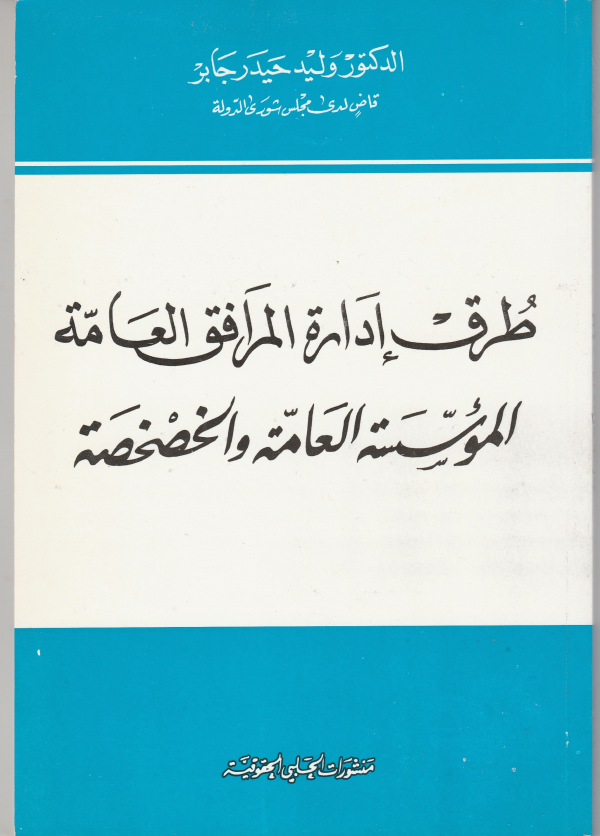 الدكتور وليد حيدر جابر
قاضٍ لدى مجلس شورى الدولة
طُرق إدَارة المرَافق العَامّة
المؤسّسَة العَامّة والخصْخصَة
منشورات الحلبي الحقوقيّة